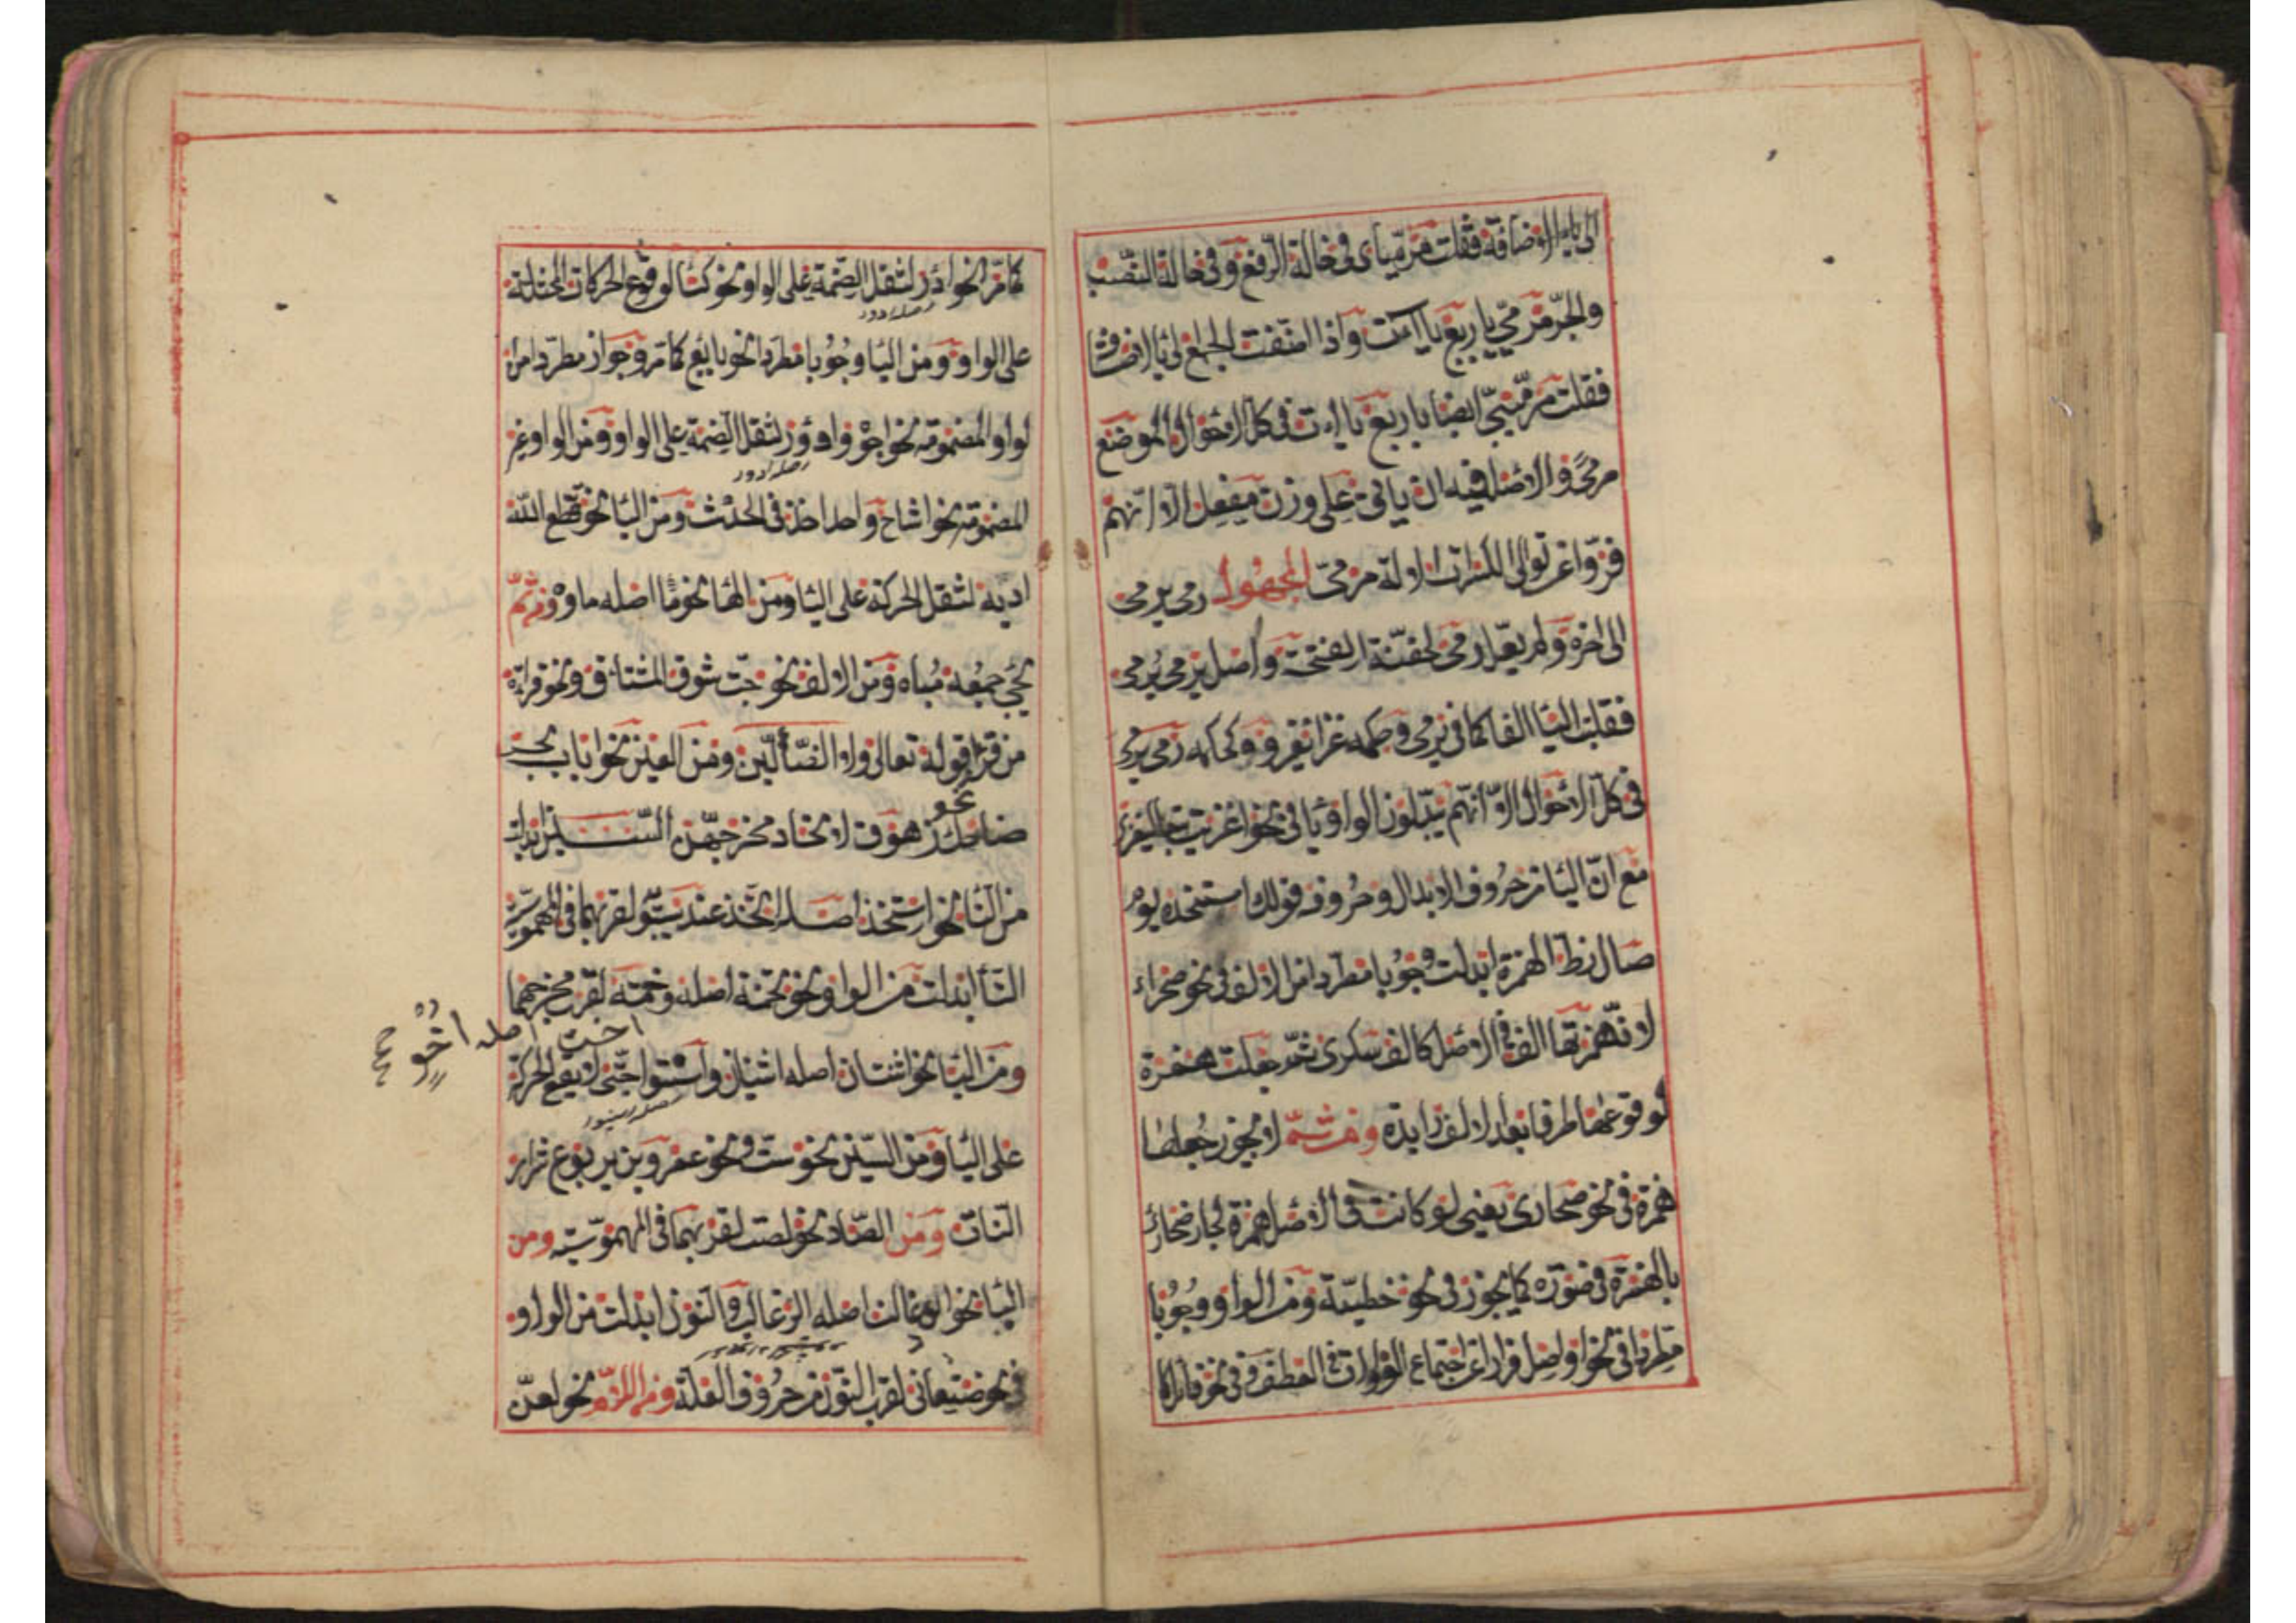 الى ياء الاضافة فقلت مرمياى فى حالة الرفع وفى حالة النصب
والجر مرميي باربع ياآت واذا اضفت الجمع الى ياء الاضافة
فقلت مرميي ايضا باربع ياءت فى كل الاحوال الموضع
مرمى والاصل فيه ان ياتى على وزن مفعل الا انهم
فروا عن توالى الكسرات الالة مرمى المجهول رمى يرمى
الى اخره ولم يعل رمى لخفة الفتحة واصل يرمى يرمى
فقلبت اليا الفا كما فى يرمى وحكم غزا يغزو وكحكم رمى يرمى
فى كل الاحوال الا انهم يبدلون الواو يا فى نحو اغزيت تبعا ليغزى
مع ان اليا من حروف الابدال وحروفه قولك استنجده يوم
صال زط الهمزة ابدلت وجوبا مطردا من الالف فى نحو صحراء
لان همزتها الف فى الاصل كالف سكرى ثم جعلت همزة
لوقوعها طرفا بعد الالف زايدة ومن ثم لا يجوز جعلها
همزة فى نحو صحارى يعنى لو كانت فى الاصل همزة لجاز صحائر
بالهمزة فى صورة كما يجوز فى نحو خطيئة ومن الواو وجوبا
مطردا فى نحو اواصل فرارا عن اجتماع الواوات فى العطف وفى نحو قائل كما
كما مر نحو ادؤر لثقل الضمة على الواو ونحو كسا لوقوع الحركات المختلفة
اصله ادور
على الواو ومن اليا وجوبا مطردا نحو بايع كما مر وجوازا مطردا من
لواو المضمومة نحو اجوه وادؤر لثقل الضمة على الواو ومن الواو غير
اصله ادور
المضمومة نحو اشاح واحد احد فى الحدث ومن اليا نحو قطع الله
اديه لثقل الحركة على اليا ومن الها نحو ما اصله ماوه ومن ثم
يجيء جمعه مياه ومن الالف نحو هيجت شوق المشتائق ونحو قراءة
من قرا قوله تعالى ولا الضالين ومن العين نحو اباب بحر
ضاحك زهوق لاتحاد مخرجهن السين ابدلت
نحو
من التا نحو استخذ اصله اتخذ عند سيبويه لقربهما فى المهموسية
التا ابدلت من الواو نحو تخمة اصله وخمة لقرب مخرجهما
اخت اصله اخو
ومن اليا نحو اثنتان اصله اثنيان واسنتوا حتى لا يقع الحركة
على اليا ومن السين نحو ست ونحو عمرو بن يربوع شرار
النات ومن الصاد نحو لصت لقربهما فى المهموسية ومن
البا نحو الذعالت اصله الذعالب والنون ابدلت من الواو
فى نحو صنعانى لقرب النون من حروف العلة ومن اللام نحو لعن